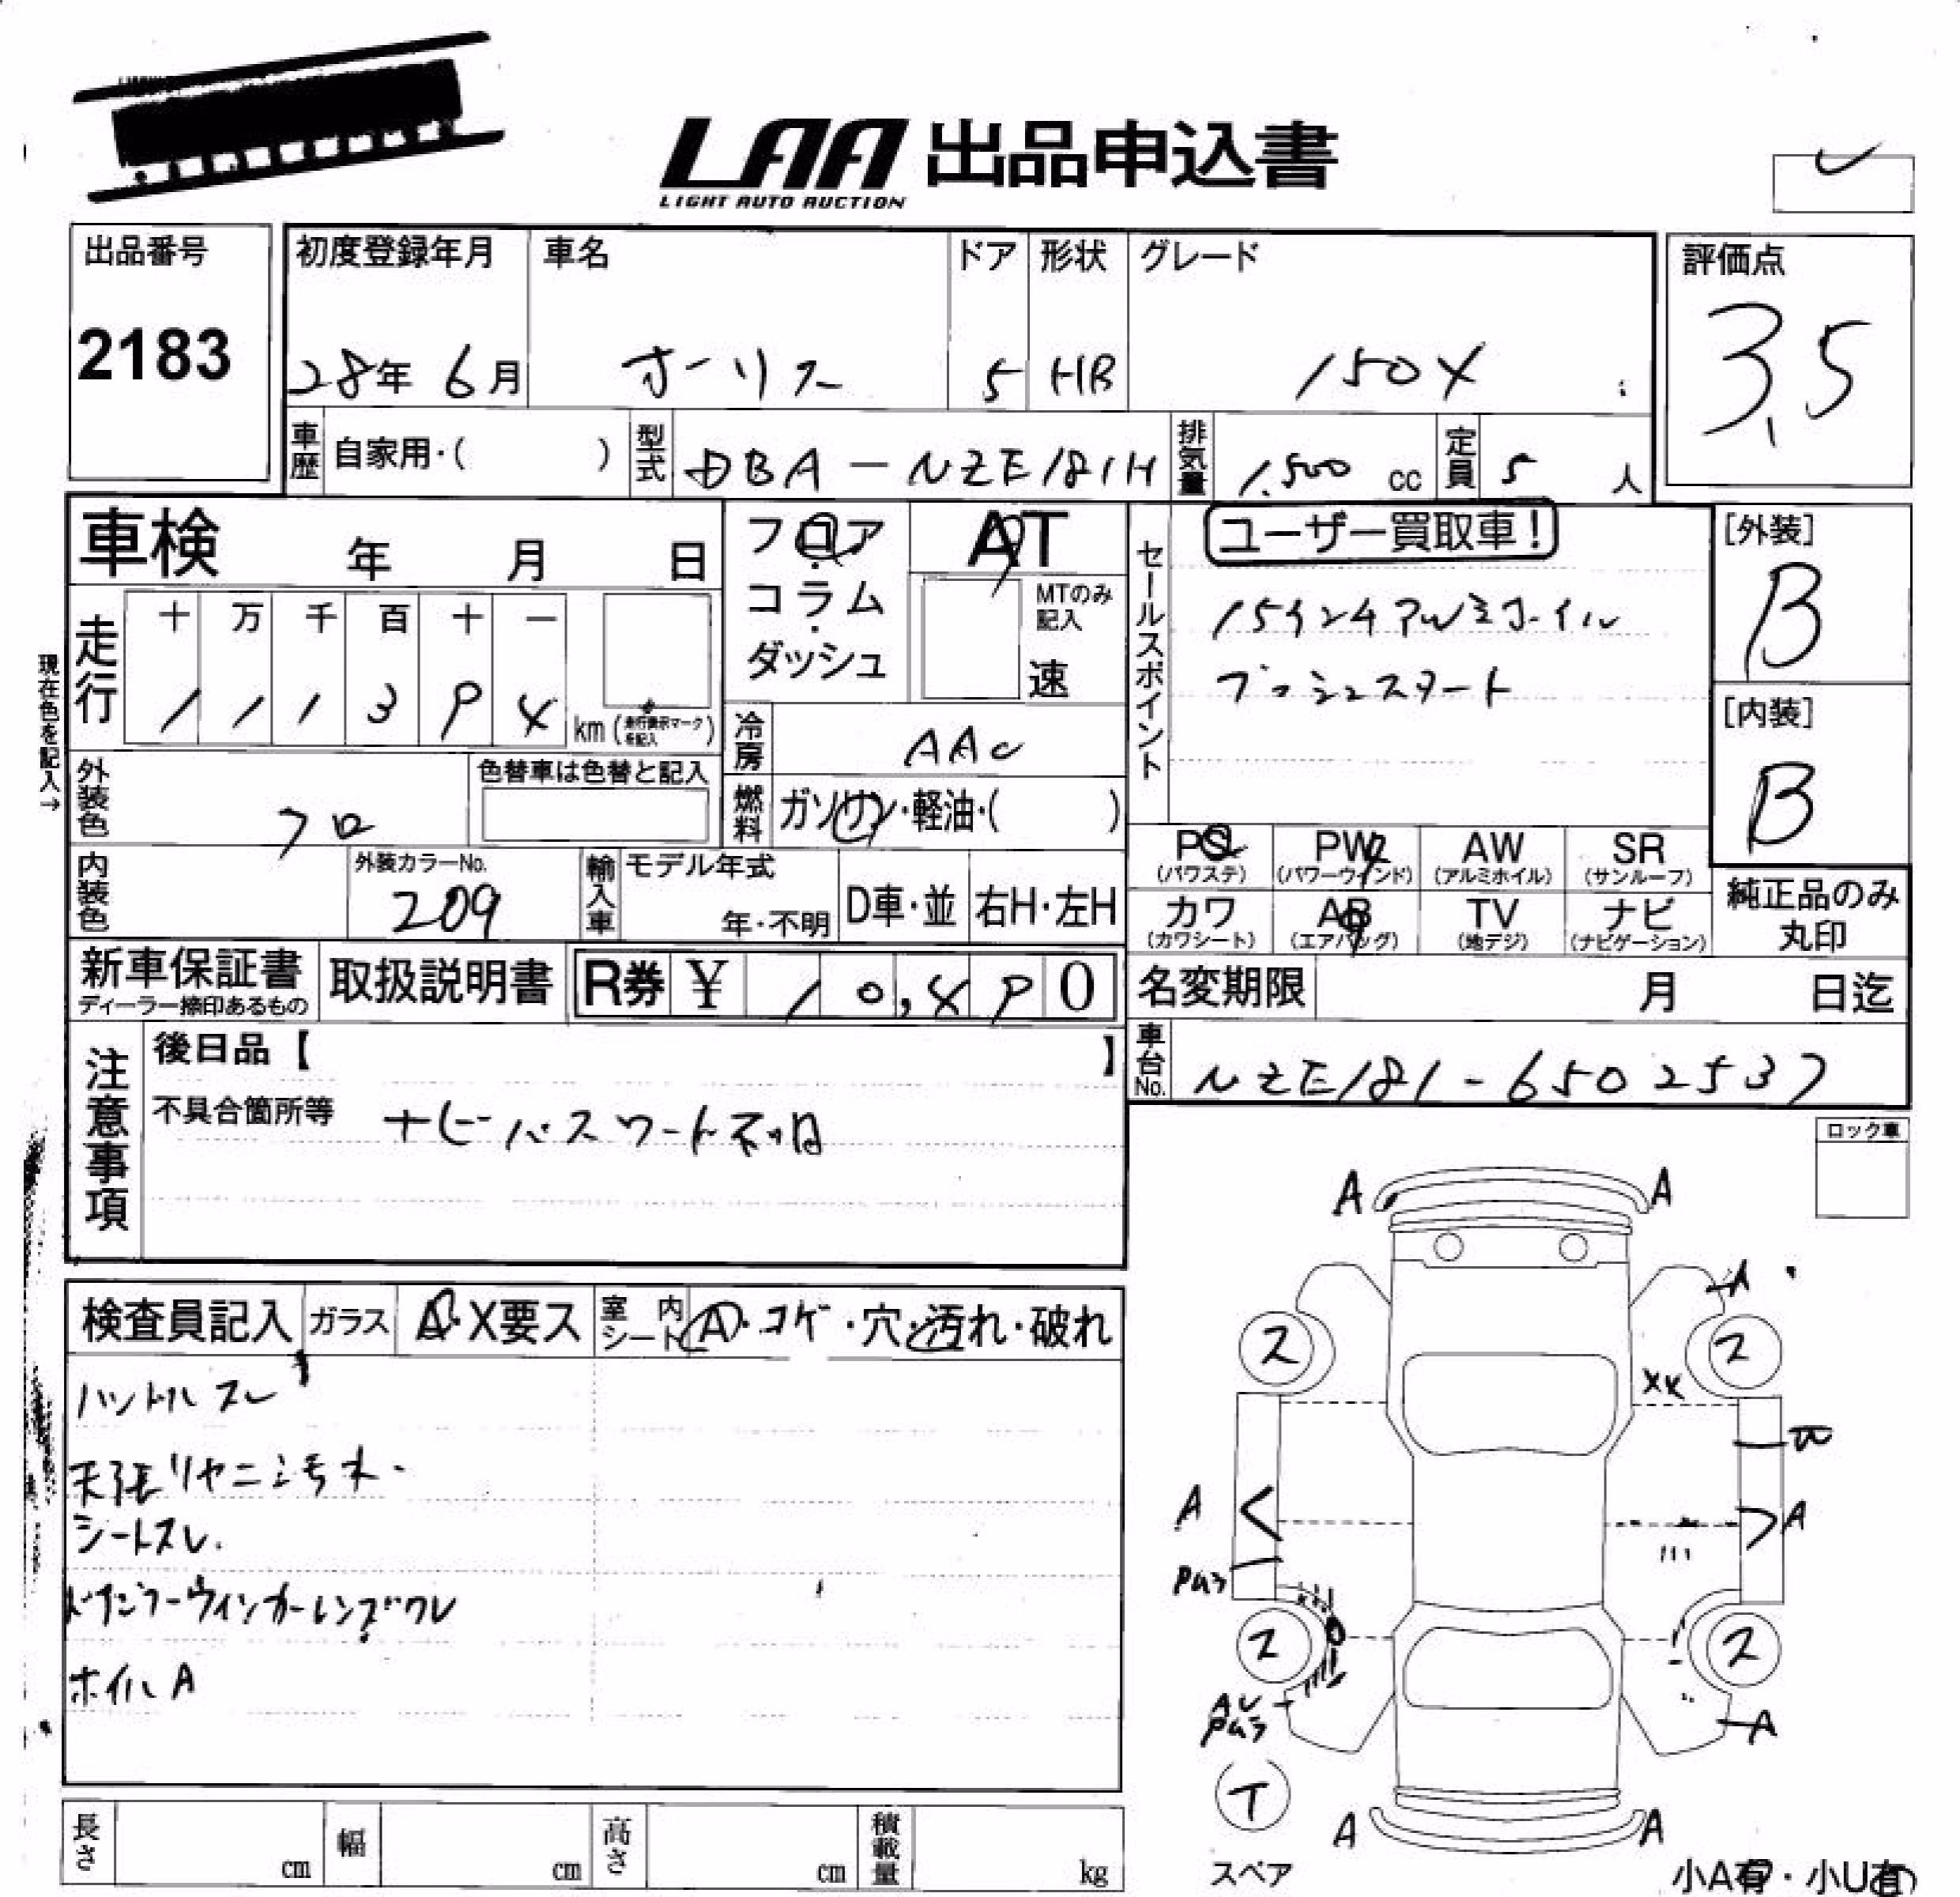 LAA 出品申込書
LIGHT AUTO AUCTION
出品番号
2183
初度登録年月
28年 6月
車名
オーリス
ドア
5
形状
HB
グレード
150X
評価点
3.5
車歴 自家用・( )
型式 DBA-NZE181H
排気量 1,500 cc
定員 5 人
車検 年 月 日
フロア
コラム
ダッシュ
AT
MTのみ記入
速
セールスポイント
ユーザー買取車!
プッシュスタート
[外装]
B
[内装]
B
現在色を記入→
走行
十 万 千 百 十 一
1 1 1 3 9 4 km (走行表示マークを記入)
冷房 AAC
外装色 クロ
色替車は色替と記入
燃料 ガソリン・軽油・( )
PS (パワステ)
PW (パワーウィンド)
AW (アルミホイル)
SR (サンルーフ)
カワ (カワシート)
AB (エアバッグ)
TV (地デジ)
ナビ (ナビゲーション)
純正品のみ丸印
内装色
外装カラーNo.
209
輸入車
モデル年式
年・不明
D車・並
右H・左H
新車保証書
ディーラー捺印あるもの
取扱説明書
R券 ¥ 10,490
名変期限 月 日迄
注意事項
後日品【 】
不具合箇所等 ナビパスワード不明
車台No. NZE181-6502537
ロック車
検査員記入
ガラス A・X要ス
室内シート A・コゲ・穴・汚れ・破れ
ハンドルスレ
天張リヤニジミ汚れ
シートスレ
ドアミラーウインカーレンズワレ
ホイルA
A A
A
ス ス
XX
A A
ス ス
A
T
スペア
A A
長さ cm
幅 cm
高さ cm
積載量 kg
小A有・小U有